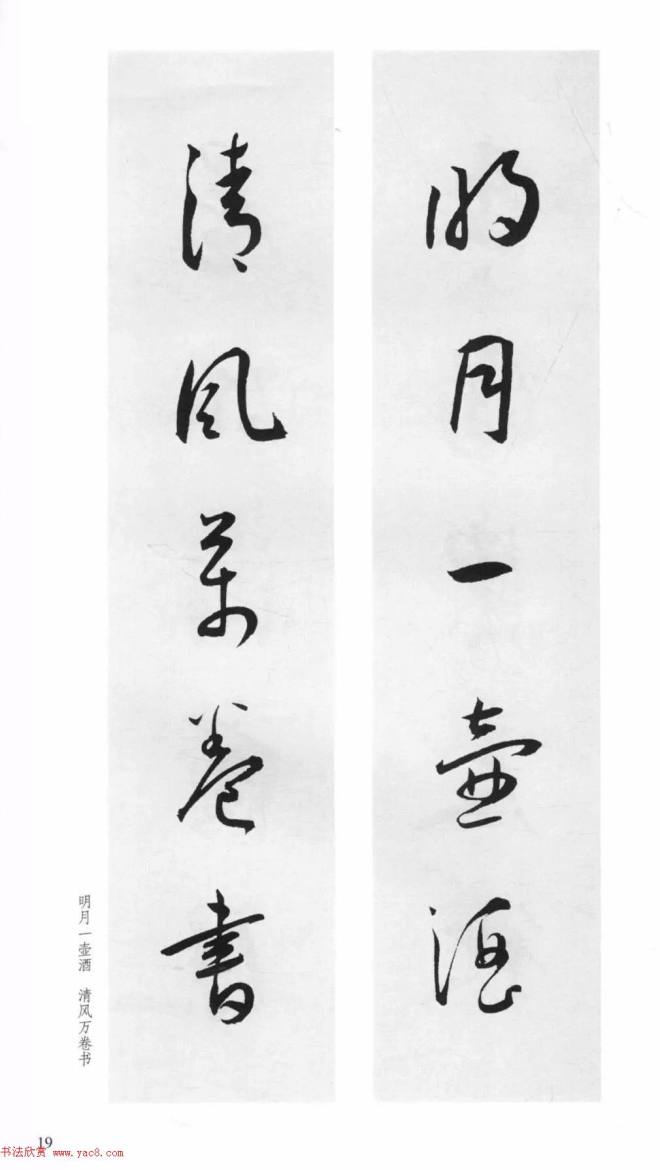 明月一壶酒
清风萬卷書
明月一壶酒 清风万卷书
19
书法欣赏 www.yac8.com